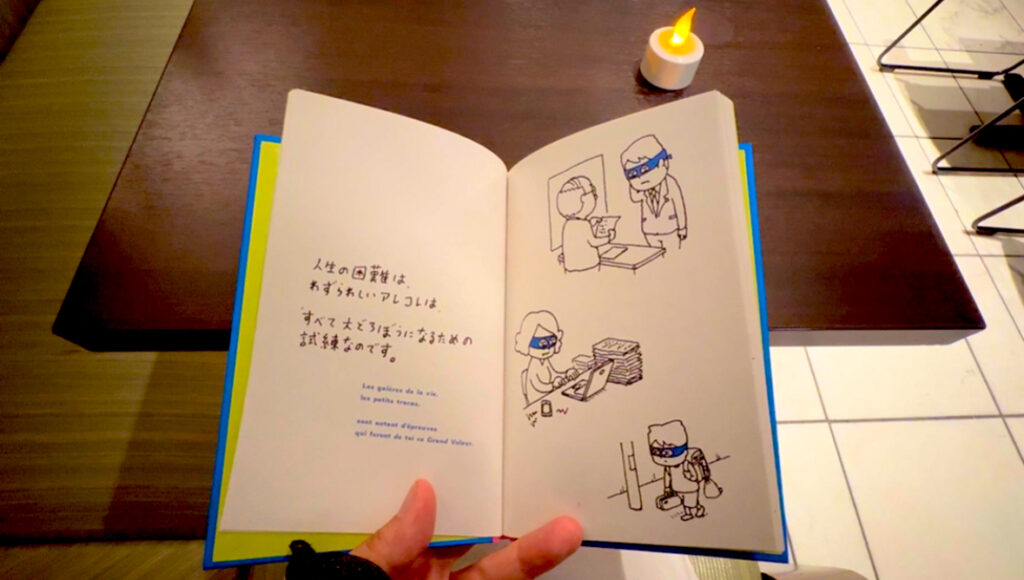 人生の困難は、
わずらわしいアレコレは、
すべて大どろぼうになるための
試練なのです。
Les galères de la vie,
les petits tracas,
sont autant d'épreuves
qui feront de toi ce Grand Voleur.